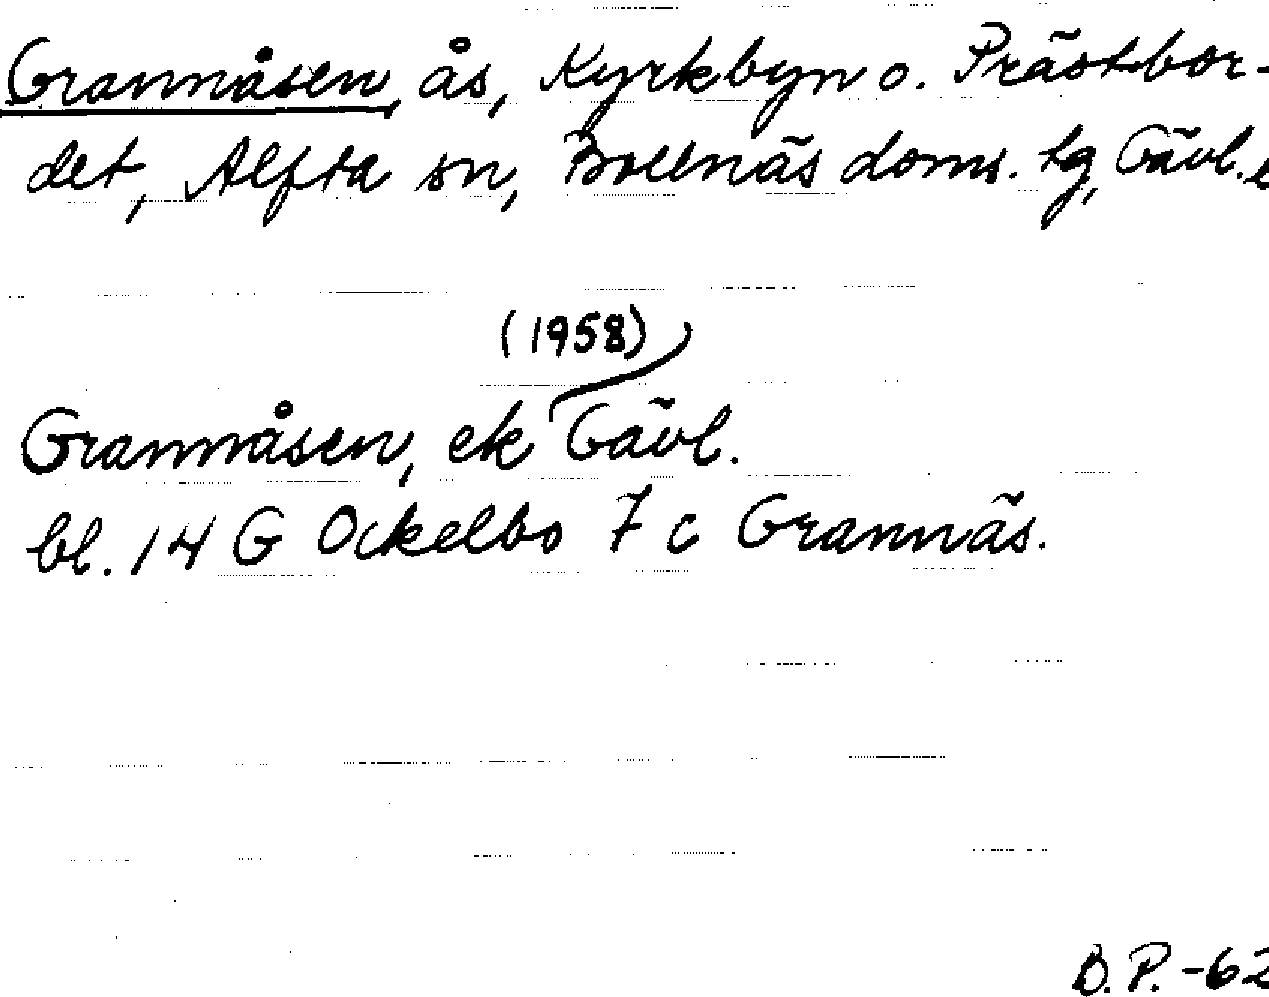 Grannåsen, ås, Kyrkbyn o. Prästbor-
det, Alfta sn, Bollnäs doms. tg, Gävl.
(1958)
Grannåsen, ek Gävl.
bl. 14 G Ockelbo 7 c Grannäs.
B.P.-62